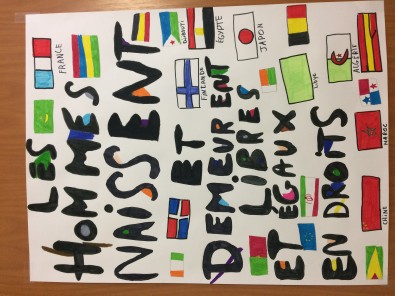 LES
FRANCE
HOMMES
NAISSENT
DJIBOUTI
ET
FINLANDE
ÉGYPTE
DEMEURENT
LIBRES
JAPON
ET ÉGAUX
EN DROITS
ALGÉRIE
CHINE
MAROC